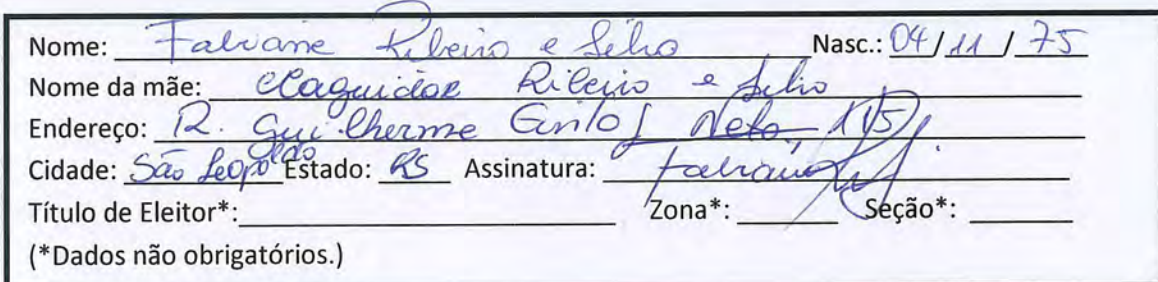 Nome: Fabiane Ribeiro e Silva Nasc.: 04/11/75
Nome da mãe: Ribeiro e Silva
Endereço: R. Guilherme Neto, 115
Cidade: São Leopoldo Estado: RS Assinatura: Fabiane
Título de Eleitor*: Zona*: Seção*:
(*Dados não obrigatórios.)